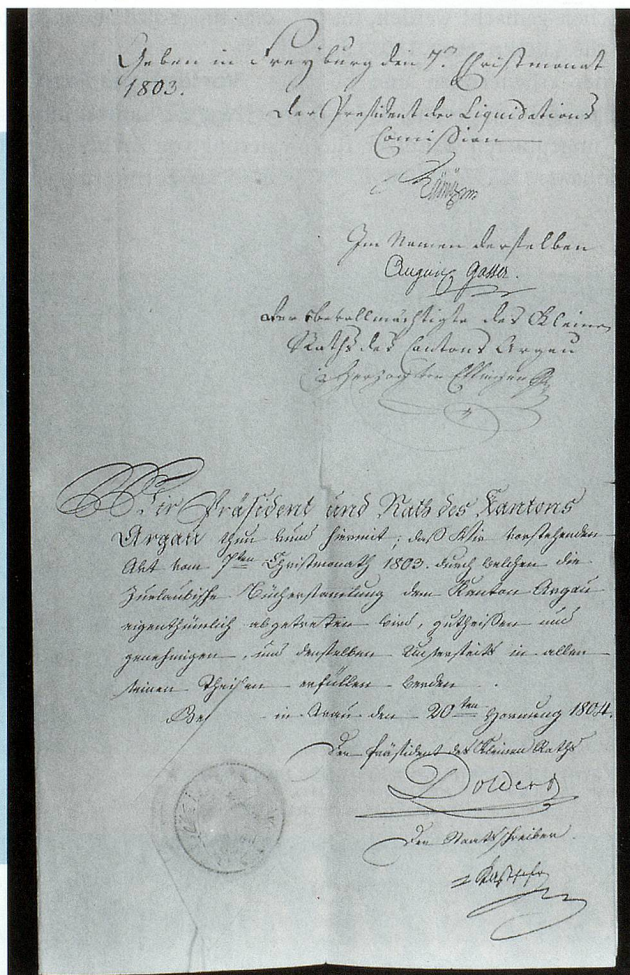 Geben in Freyburg den 7.ⁿ Christmonat
1803.
Der President der Liquidations
Comission
Im Namen derselben
August Gasser.
Der bevollmächtigte des Kleinen
Raths des Cantons Argau
Herzog von Effingen
Wir Präsident und Rath des Kantons
Argau thun kund hiermit, daß Wir vorstehenden
Akt vom 7ten Christmonath 1803. durch welchen die
Zurlaubische Büchersammlung dem Kanton Argau
eigenthümlich abgetretten wird, gutheissen und
genehmigen, und denselben Unserseits in allen
seinen Theilen erfüllen werden.
in Arau den 20ten Hornung 1804.
Der Präsident des Kleinen Raths
Dolder
Der Staatsschreiber
Kasthofer